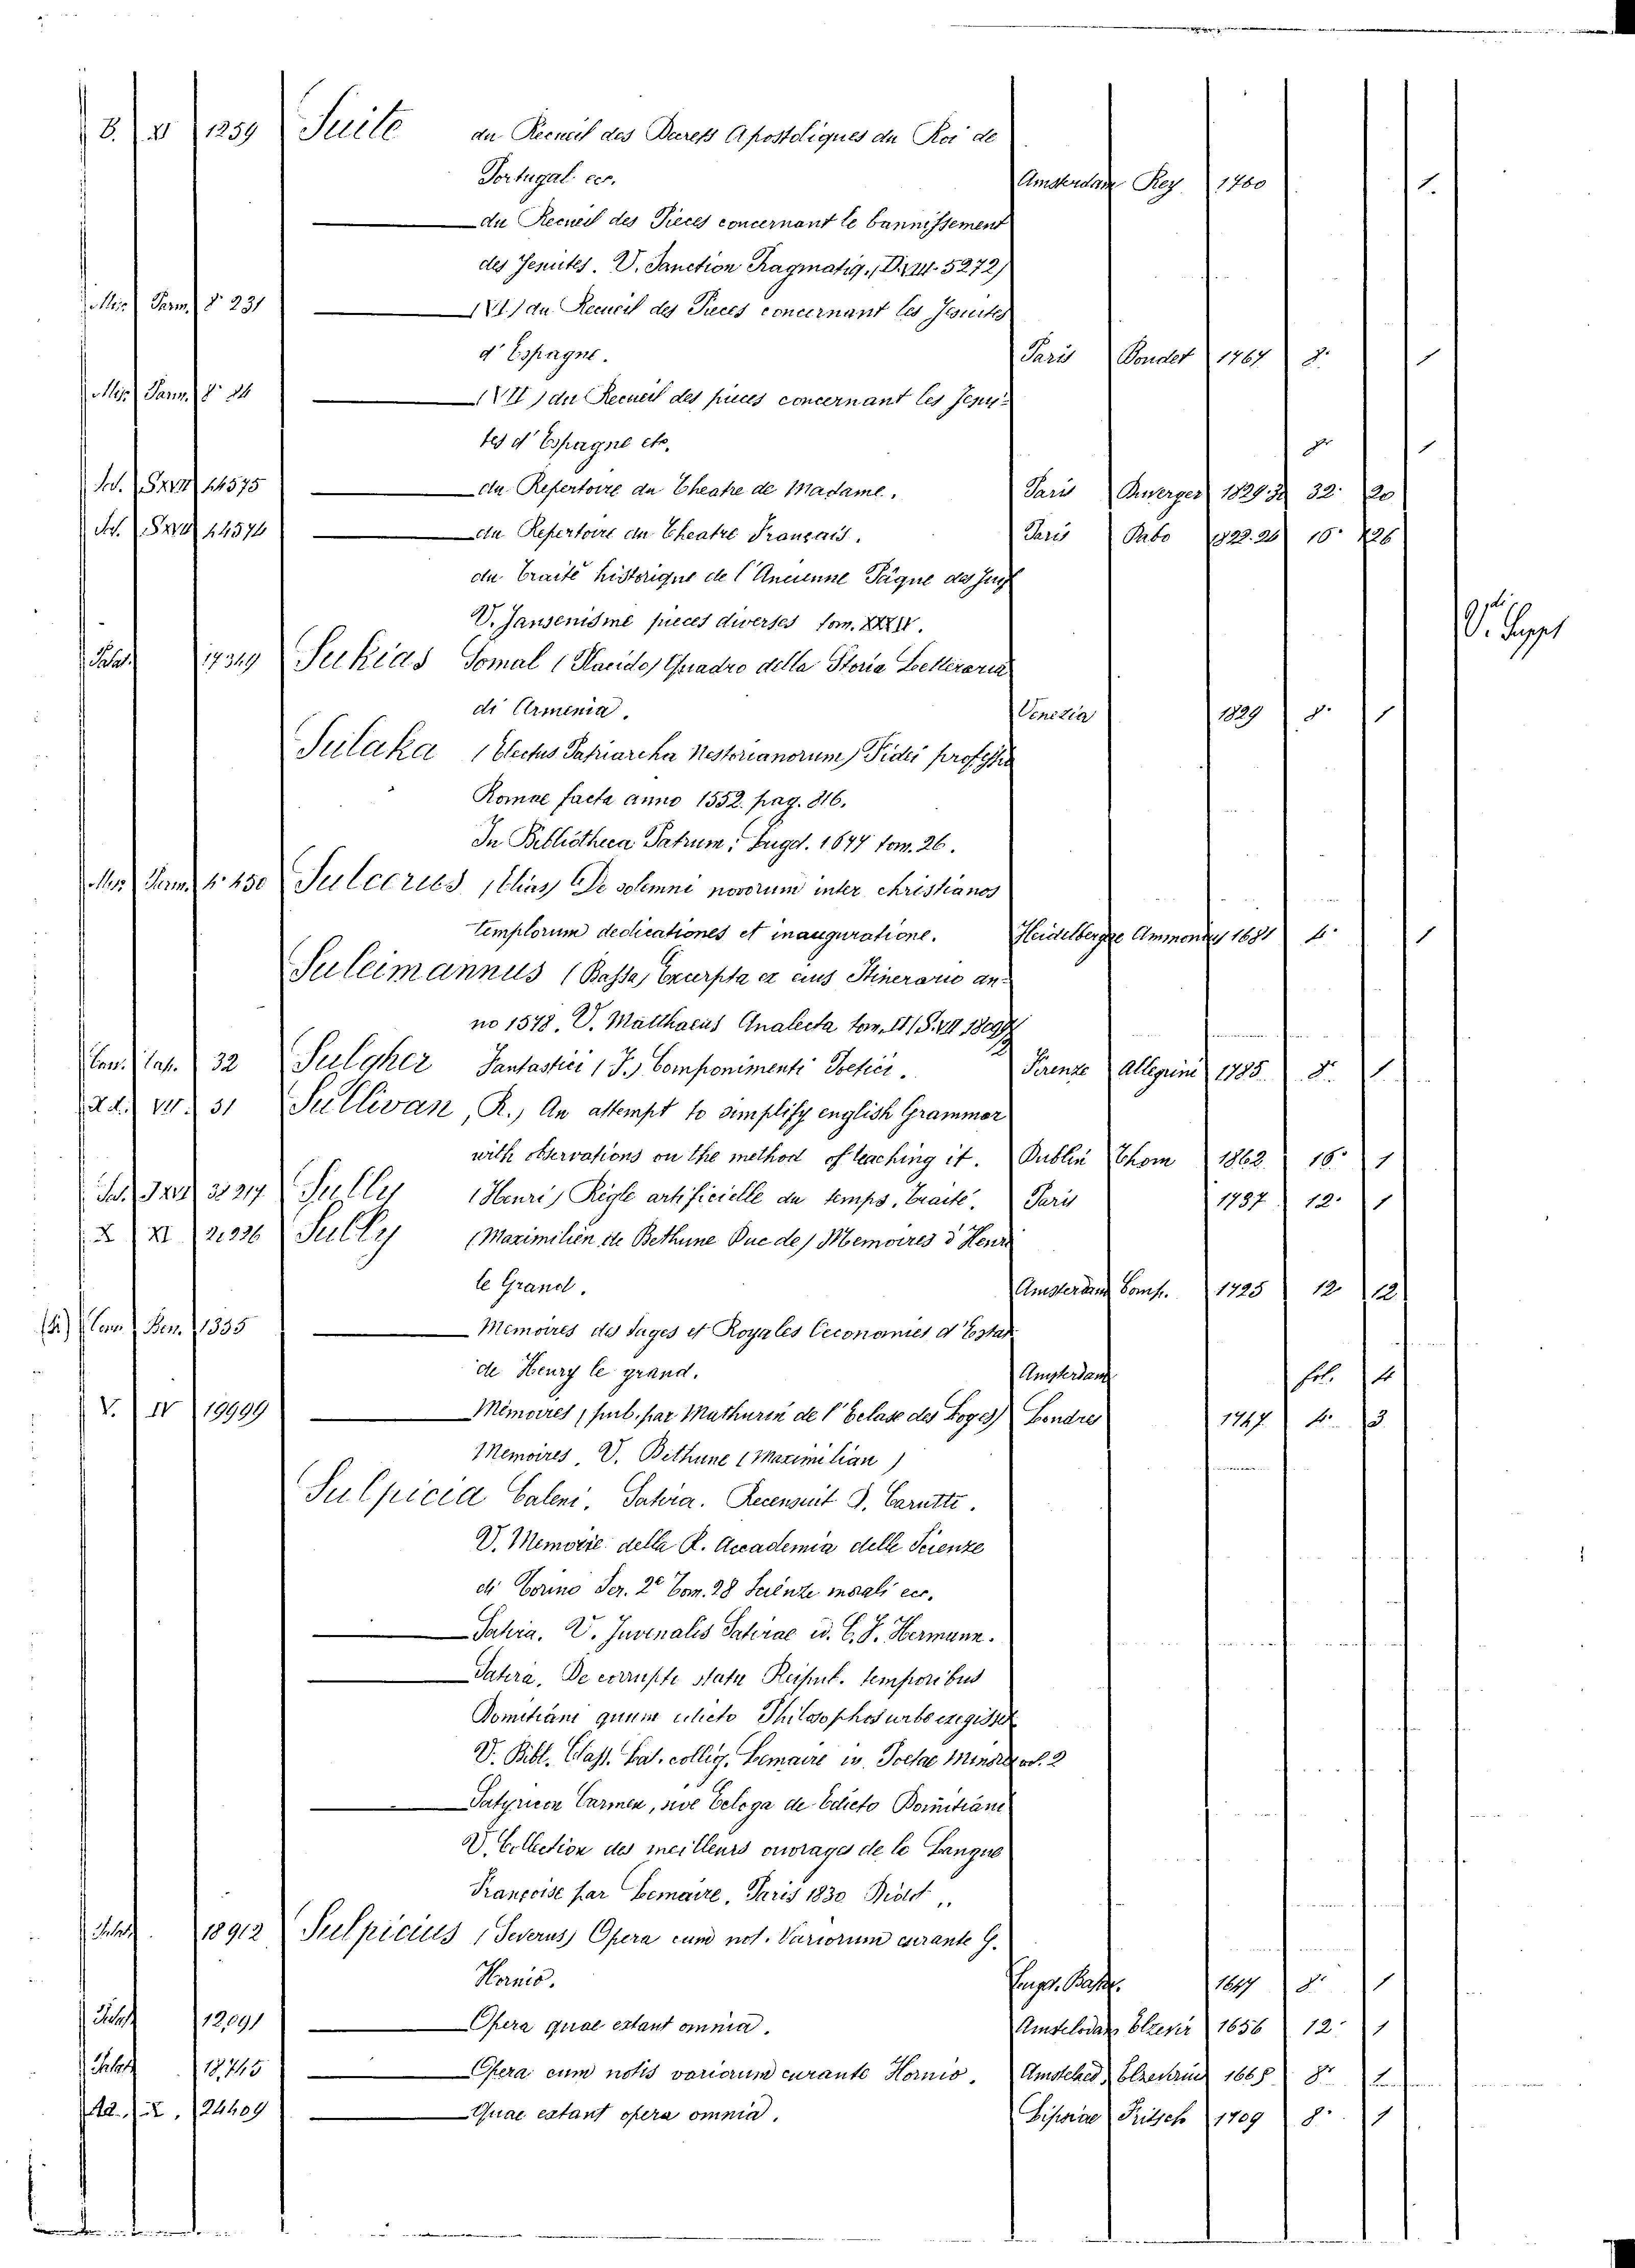 B. XI 1259 Suite du Recueil des Decrets Apostoliques du Roi de
Portugal ecc. Amsterdam Rey 1760 1.
du Recueil des Pieces concernant le bannissement
des Jesuites. V. Sanction Pragmatiq.
Misc. Parm. 8° 231 du Recueil des Pieces concernant les Jesuites
d'Espagne. Paris 1767 8° 1
Misc. Parm. 8° 24 (VII) du Recueil des pieces concernant les Jesui-
tes d'Espagne etc. 8° 1
S.XVII 44575 du Repertoire du Theatre de Madame. Paris 32° 20
44574 du Repertoire du Theatre Français. Paris 1822.24 18° 126
du Traité historique de l'Ancienne Pâque des Juifs
V. Jansenisme pieces diverses tom. V. Suppl
Palat. 17349 Sukias Somal (Placido) Quadro della Storia Letteraria
di Armenia. Venezia 1829 8° 1
Sulaka (Electus Patriarcha Nestorianorum) Fidei professio
Romae facta anno 1552. pag. 816.
In Bibliotheca Patrum. Lugd. 1677 tom. 26.
Misc. Parm. 4° 450 Sulcerius (Elias) De solemni novorum inter christianos
templorum dedicationes et inauguratione. Heidelbergae Ammonius 1681 4° 1
Suleimannus (Bassa) Excerpta ex eius Itinerario an-
no 1578. V. Matthaeus Analecta tom.
32 Sulgher Fantastici (F.) Componimenti Poetici. Firenze Allegrini 1785 8° 1
VII. 31 Sullivan, R., An attempt to simplify english Grammar
with observations on the method of teaching it. Dublin Thom 1862 16° 1
Sully (Henri) Règle artificielle du temps, traité. Paris 1737 12° 1
X XI Sully (Maximilien de Bethune Duc de) Memoires d'Henri
le Grand. Amsterdam Comp. 1725 12 12
1335 Memoires des sages et Royales Oeconomies d'Estat
de Henry le grand. Amsterdam fol. 4
V. IV 19999 Mémoires, pub. par Mathurin de l'Eclase des Loges) Londres 1747 4° 3
Memoires, V. Bethune (Maximilian)
Sulpicia Caleni. Satira. Recensuit D. Carutti.
V. Memorie della R. Accademia delle Scienze
di Torino Ser. 2ª Tom. 28 Scienze morali ecc.
Satira. V. Juvenalis Satirae ed. C. F. Hermann.
Satira, De corrupto statu Reipub. temporibus
Domitiani quum edicto Philosophos urbe exegisset
V. Bibl. Class. Lat. collig. Lemaire in Poetae Minores vol. 2
Satyricon Carmen, sive Ecloga de Edicto Domitiani
V. Collection des meilleurs ouvrages de la Langue
Françoise par Lemaire. Paris 1830 Didot
Palat. 18912 Sulpicius (Severus) Opera cum not. Variorum curante G.
Hornio. Lugd. Batav. 1647 8° 1
Palat. 12091 Opera quae extant omnia. Amstelodam Elzevir 1656 12° 1
Palat. 18745 Opera cum notis variorum curante Hornio. Amstelod. 1665 8° 1
24409 Quae extant opera omnia. Lipsiae Fritsch 1709 8° 1